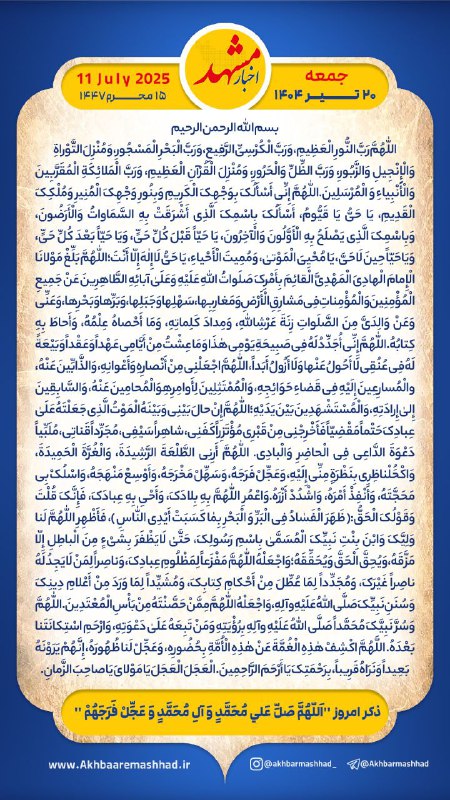 اخبار مشهد
جمعه
۲۰ تیر ۱۴۰۴
11 July 2025
۱۵ محرم ۱۴۴۷
بسم الله الرحمن الرحیم
اَللّٰهُمَّ رَبَّ النُّورِ الْعَظِیمِ، وَرَبَّ الْکُرْسِیِّ الرَّفِیعِ، وَرَبَّ الْبَحْرِ الْمَسْجُورِ، وَمُنْزِلَ التَّوْراةِ
وَالْإِنْجِیلِ وَالزَّبُورِ، وَرَبَّ الظِّلِّ وَالْحَرُورِ، وَمُنْزِلَ الْقُرْآنِ الْعَظِیمِ، وَرَبَّ الْمَلائِکَةِ الْمُقَرَّبِینَ
وَالْأَنْبِیاءِ وَالْمُرْسَلِینَ، اللّٰهُمَّ إِنِّی أَسْأَلُکَ بِوَجْهِکَ الْکَرِیمِ وَبِنُورِ وَجْهِکَ الْمُنِیرِ وَمُلْکِکَ
الْقَدِیمِ، یَا حَیُّ یَا قَیُّومُ، أَسْأَلُکَ بِاسْمِکَ الَّذِی أَشْرَقَتْ بِهِ السَّمَاوَاتُ وَالْأَرَضُونَ،
وَبِاسْمِکَ الَّذِی یَصْلَحُ بِهِ الْأَوَّلُونَ وَالْآخِرُونَ، یَا حَیّاً قَبْلَ کُلِّ حَیٍّ، وَیَا حَیّاً بَعْدَ کُلِّ حَیٍّ،
وَیَا حَیّاً حِینَ لَاحَیَّ، یَا مُحْیِیَ الْمَوْتیٰ، وَمُمِیتَ الْأَحْیاءِ، یَا حَیُّ لَاإِلٰهَ إِلّا أَنْتَ؛ اللّٰهُمَّ بَلِّغْ مَوْلانَا
الْإِمامَ الْهادِیَ الْمَهْدِیَّ الْقائِمَ بِأَمْرِکَ صَلَواتُ اللّٰهِ عَلَیْهِ وَعَلَیٰ آبائِهِ الطَّاهِرِینَ عَنْ جَمِیعِ
الْمُؤْمِنِینَ وَالْمُؤْمِناتِ فِی مَشارِقِ الْأَرْضِ وَمَغارِبِها، سَهْلِها وَجَبَلِها، وَبَرِّها وَبَحْرِها، وَعَنِّی
وَعَنْ وَالِدَیَّ مِنَ الصَّلَواتِ زِنَةَ عَرْشِ اللّٰهِ، وَمِدادَ کَلِماتِهِ، وَمَا أَحْصاهُ عِلْمُهُ، وَأَحاطَ بِهِ
کِتابُهُ. اللّٰهُمَّ إِنِّی أُجَدِّدُ لَهُ فِی صَبِیحَةِ یَوْمِی هٰذَا وَمَا عِشْتُ مِنْ أَیَّامِی عَهْداً وَعَقْداً وَبَیْعَةً
لَهُ فِی عُنُقِی لَا أَحُولُ عَنْها وَلَا أَزُولُ أَبَداً، اللّٰهُمَّ اجْعَلْنِی مِنْ أَنْصارِهِ وَأَعْوانِهِ، وَالذَّابِّینَ عَنْهُ،
وَالْمُسارِعِینَ إِلَیْهِ فِی قَضاءِ حَوَائِجِهِ، وَالْمُمْتَثِلِینَ لِأَوامِرِهِ وَالْمُحامِینَ عَنْهُ، وَالسَّابِقِینَ
إِلی إِرادَتِهِ، وَالْمُسْتَشْهَدِینَ بَیْنَ یَدَیْهِ؛ اللّٰهُمَّ إِنْ حالَ بَیْنِی وَبَیْنَهُ الْمَوْتُ الَّذِی جَعَلْتَهُ عَلَیٰ
عِبادِکَ حَتْماً مَقْضِیّاً فَأَخْرِجْنِی مِنْ قَبْرِی مُؤْتَزِراً کَفَنِی، شاهِراً سَیْفِی، مُجَرِّداً قَناتِی، مُلَبِّیاً
دَعْوَةَ الدَّاعِی فِی الْحاضِرِ وَالْبادِی. اللّٰهُمَّ أَرِنِی الطَّلْعَةَ الرَّشِیدَةَ، وَالْغُرَّةَ الْحَمِیدَةَ،
وَاکْحُلْ ناظِرِی بِنَظْرَةٍ مِنِّی إِلَیْهِ، وَعَجِّلْ فَرَجَهُ، وَسَهِّلْ مَخْرَجَهُ، وَأَوْسِعْ مَنْهَجَهُ، وَاسْلُکْ بِی
مَحَجَّتَهُ، وَأَنْفِذْ أَمْرَهُ، وَاشْدُدْ أَزْرَهُ. وَاعْمُرِ اللّٰهُمَّ بِهِ بِلادَکَ، وَأَحْیِ بِهِ عِبادَکَ، فَإِنَّکَ قُلْتَ
وَقَوْلُکَ الْحَقُّ: ﴿ظَهَرَ الْفَسادُ فِی الْبَرِّ وَ الْبَحْرِ بِمَا کَسَبَتْ أَیْدِی النَّاسِ﴾، فَأَظْهِرِ اللّٰهُمَّ لَنا
وَلِیَّکَ وَابْنَ بِنْتِ نَبِیِّکَ الْمُسَمَّیٰ بِاسْمِ رَسُولِکَ، حَتَّیٰ لَا یَظْفَرَ بِشَیْءٍ مِنَ الْباطِلِ إِلّا
مَزَّقَهُ، وَیُحِقَّ الْحَقَّ وَیُحَقِّقَهُ؛ وَاجْعَلْهُ اللّٰهُمَّ مَفْزَعاً لِمَظْلُومِ عِبادِکَ، وَناصِراً لِمَنْ لَایَجِدُ لَهُ
ناصِراً غَیْرَکَ، وَمُجَدِّداً لِمَا عُطِّلَ مِنْ أَحْکامِ کِتابِکَ، وَمُشَیِّداً لِمَا وَرَدَ مِنْ أَعْلامِ دِینِکَ
وَسُنَنِ نَبِیِّکَ صَلَّی اللّٰهُ عَلَیْهِ وَآلِهِ، وَاجْعَلْهُ اللّٰهُمَّ مِمَّنْ حَصَّنْتَهُ مِنْ بَأْسِ الْمُعْتَدِینَ. اللّٰهُمَّ
وَسُرَّ نَبِیَّکَ مُحَمَّداً صَلَّی اللّٰهُ عَلَیْهِ وَآلِهِ بِرُؤْیَتِهِ وَمَنْ تَبِعَهُ عَلَیٰ دَعْوَتِهِ، وَارْحَمِ اسْتِکانَتَنا
بَعْدَهُ. اللّٰهُمَّ اکْشِفْ هٰذِهِ الْغُمَّةَ عَنْ هٰذِهِ الْأُمَّةِ بِحُضُورِهِ، وَعَجِّلْ لَنا ظُهُورَهُ، إِنَّهُمْ یَرَوْنَهُ
بَعِیداً وَنَرَاهُ قَرِیباً، بِرَحْمَتِکَ یَا أَرْحَمَ الرَّاحِمِینَ. الْعَجَلَ الْعَجَلَ یَا مَوْلایَ یَا صاحِبَ الزَّمانِ.
ذکر امروز "اَللّهُمَّ صَلِّ عَلي مُحَمَّدٍ وَ آلِ مُحَمَّدٍ وَ عَجِّلْ فَرَجَهُمْ"
www.Akhbaaremashhad.ir
@akhbarmashhad_
@Akhbarmashhad